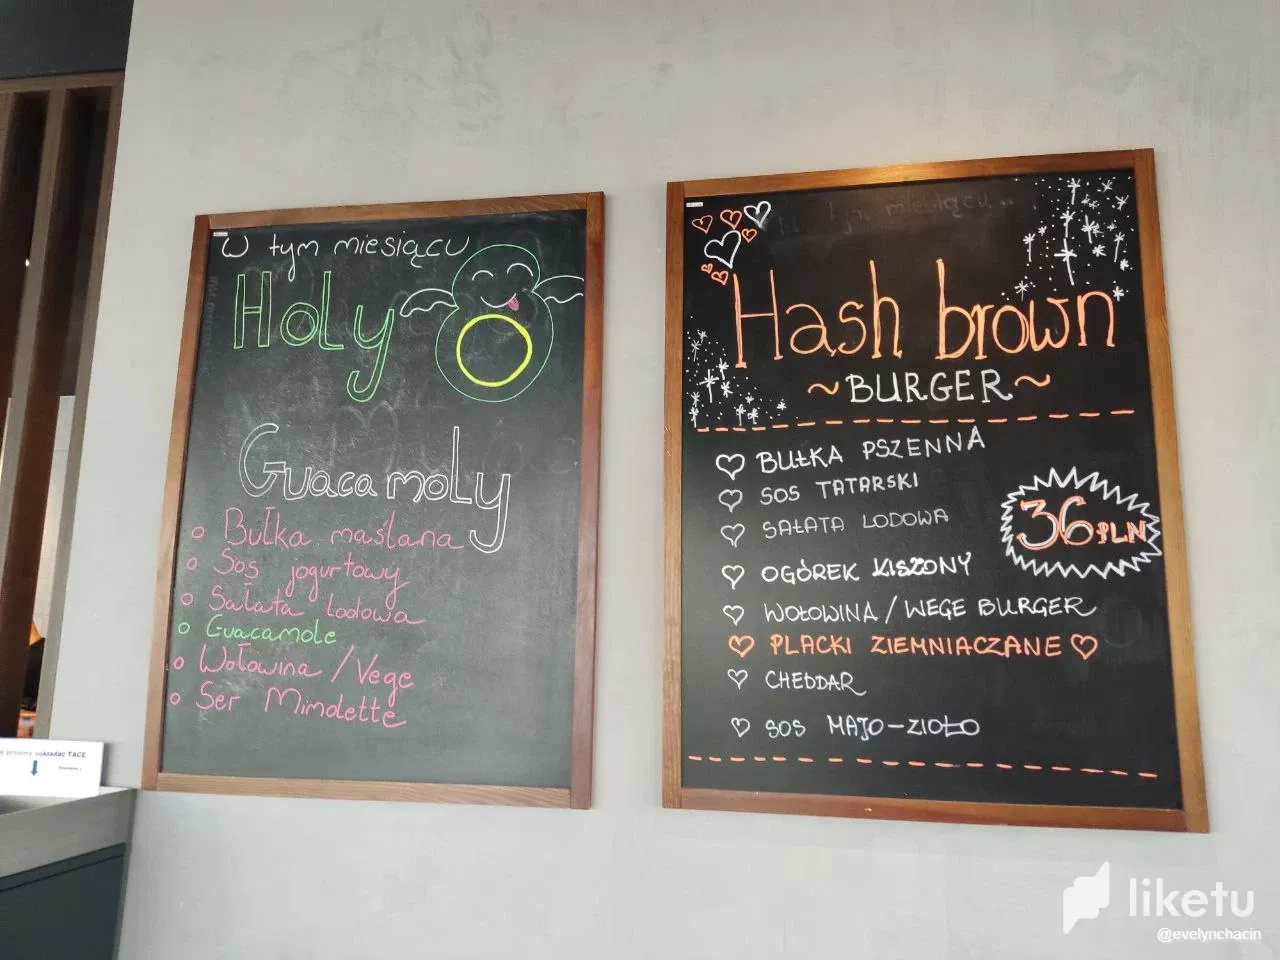 W tym miesiącu
Holy
Guacamoly
Bułka maślana
Sos jogurtowy
Sałata lodowa
Guacamole
Wołowina / Vege
Ser Mimolette
Hash brown
~BURGER~
BUŁKA PSZENNA
SOS TATARSKI
SAŁATA LODOWA
OGÓREK KISZONY
WOŁOWINA / WEGE BURGER
PLACKI ZIEMNIACZANE
CHEDDAR
SOS MAJO-ZIOŁO
36 PLN
prosimy odkładać TACE
liketu
@evelynchacin